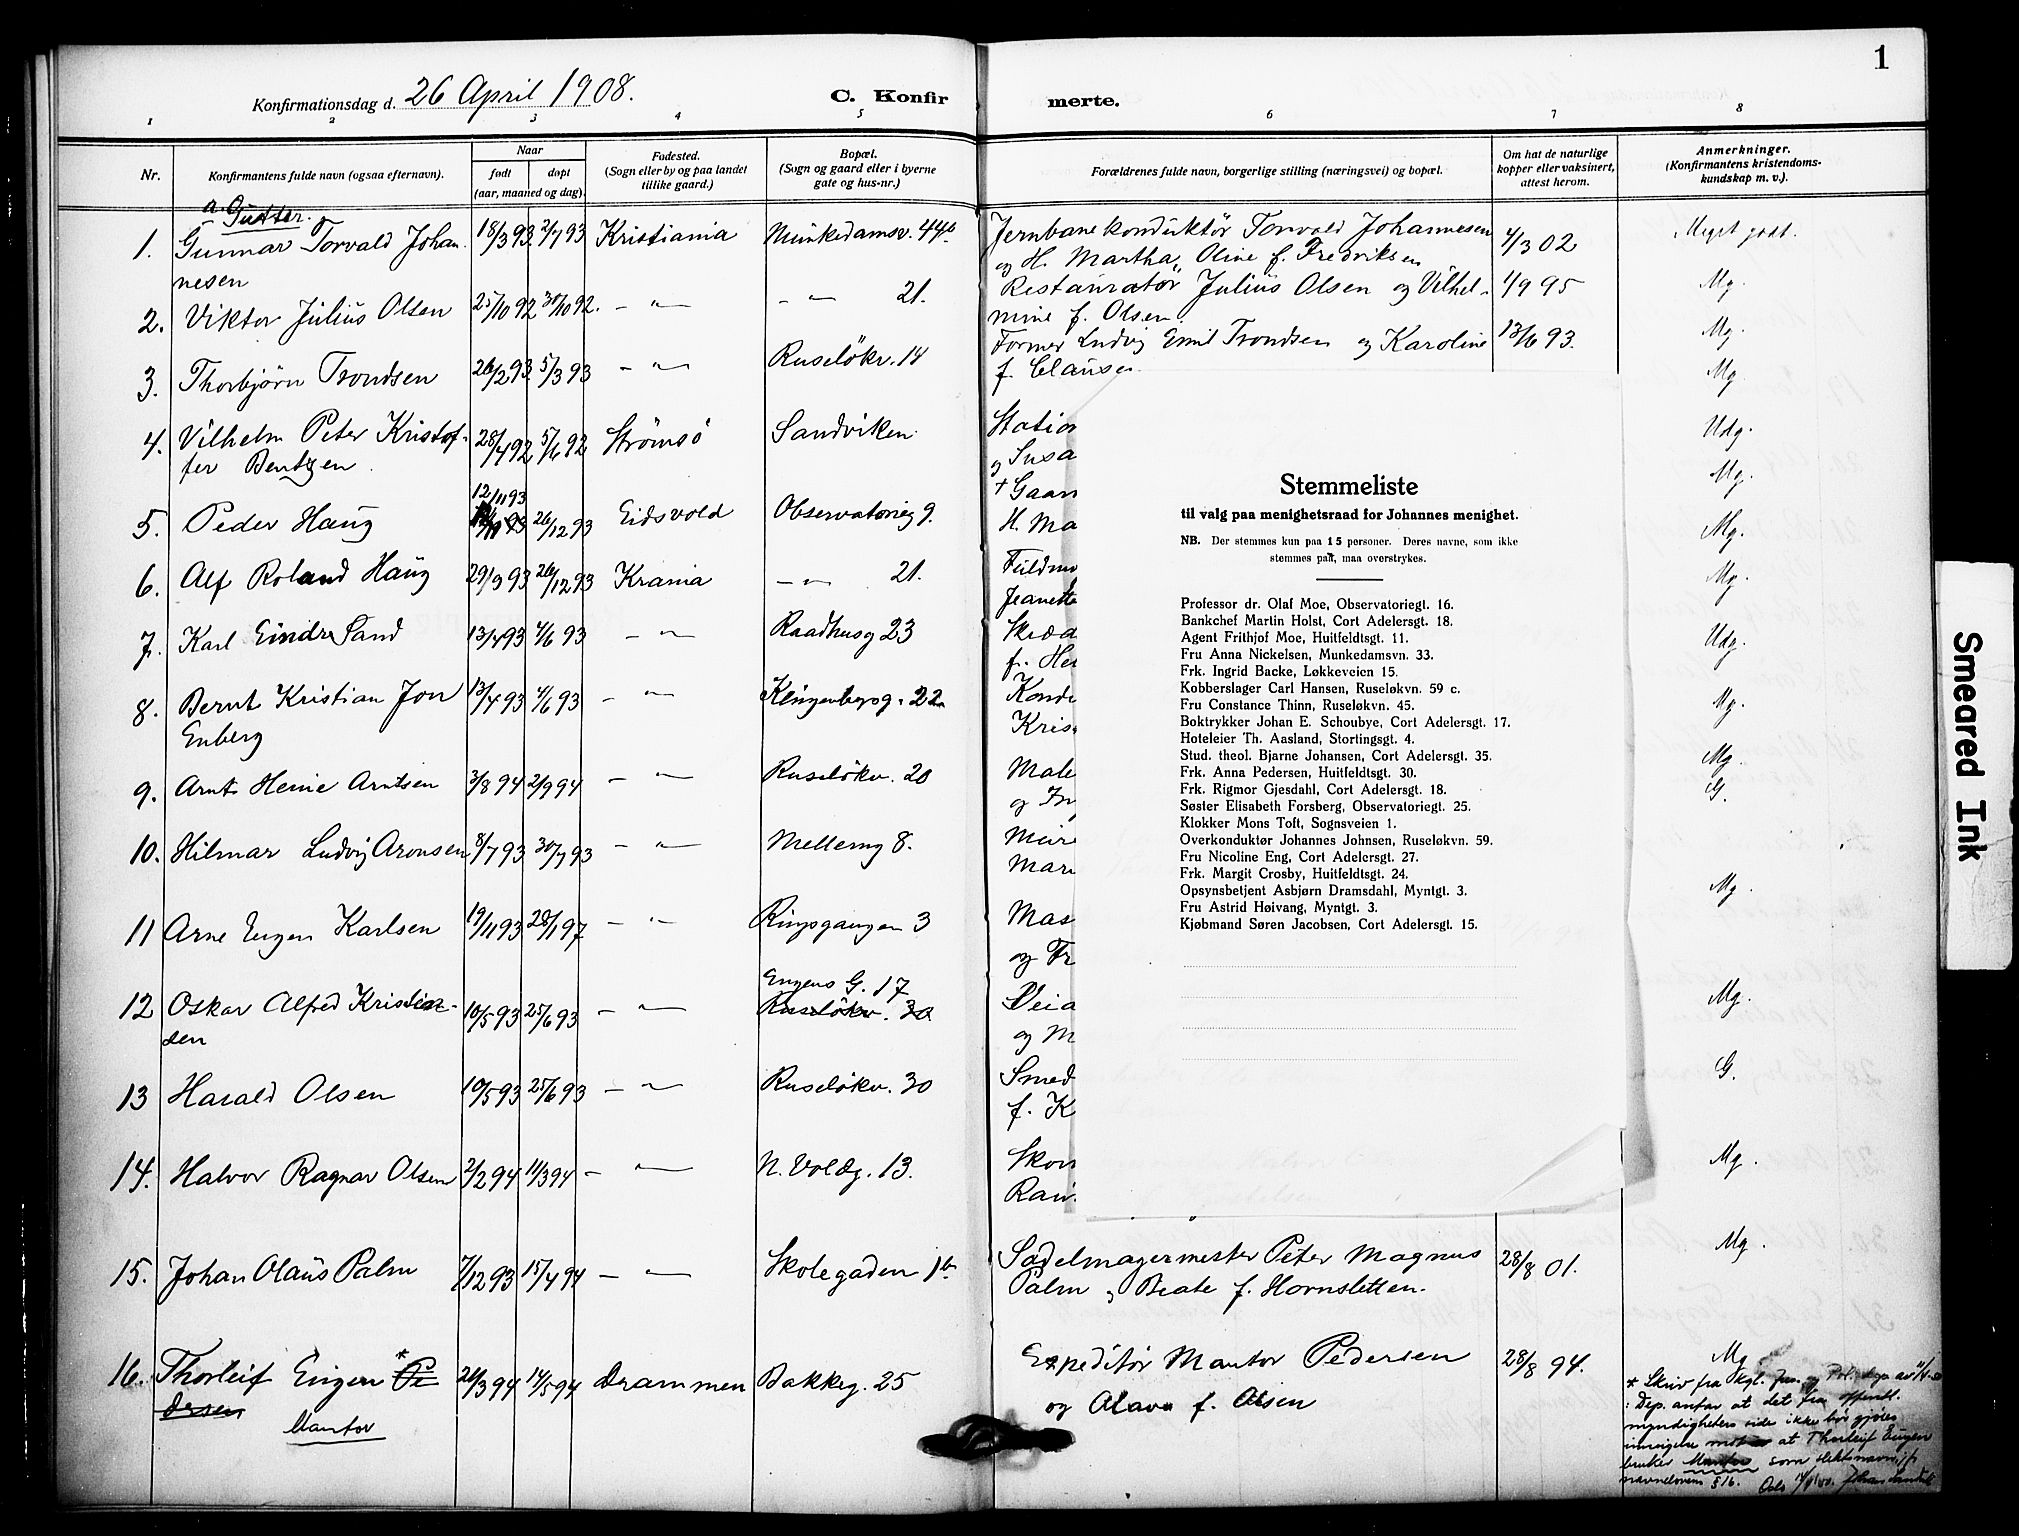 1
Konfirmationsdag d. 26 April 1908.
C. Konfir
merte.
1 2 3 4 5 6 7 8
Nr.
Konfirmantens fulde navn (ogsaa efternavn).
Naar
født
døpt
(aar, maaned og dag).
Fødested.
(Sogn eller by og paa landet
tillike gaard.)
Bopæl.
(Sogn og gaard eller i byerne
gate og hus-nr.)
Forældrenes fulde navn, borgerlige stilling (næringsvei) og bopæl.
Om hat de naturlige
kopper eller vaksinert,
attest herom.
Anmerkninger.
(Konfirmantens kristendoms-
kundskap m. v.).
a. Gutter.
1. Gunnar Torvald Johan- 18/3 93 2/7 93 Kristiania Munkedamsv. 44b Jernbanekonduktör Torvald Johannesen 4/3 02 Meget godt.
nesen og H. Martha Oline f. Fredriksen
2. Viktor Julius Olsen 25/10 92 30/10 92. - " - - " - 21. Restauratør Julius Olsen og Vilhel- 1/9 95 Mg.
mine f. Olsen.
3. Thorbjörn Trondsen 26/2 93. 5/3 93 - " - Ruselökv. 14 Former Ludvig Emil Trondsen og Karoline 13/6 93. Mg.
f. Clausen
Mg.
4. Vilhelm Peter Kristof- 28/4 92 5/6 92 Strömsö Sandviken Station
fer Bentzen og Susa
Udg.
+ Gaar
Mg.
5. Peder Haug 12/11 93 26/12 93 Eidsvold Observatorieg 9. H. Ma
Mg.
6. Alf Roland Haug 29/3 93 26/12 93 Krania - " - 21. Feildm
Jeanette
Mg.
7. Karl Eindre Sand 13/4 93 4/6 93 - " - Raadhusg 23 Skræd
f. Hei
Udg.
8. Bernt Kristian Jon 13/4 93 4/6 93 - " - Klingenbergg. 22 Kondu
Enberg Kris
Mg.
9. Arnt Heine Arntsen 3/8 94 2/9 94 - " - Ruselökv. 20 Male
og In
Mg.
G.
10. Hilmar Ludvig Aronsen 8/7 93 30/7 93 - " - Mellemg 8. Mure
Mari
Mg.
11 Arne Eugen Karlsen 19/11 93 28/1 97 - " - Ringsgangen 3 Mas
og Fr
12 Oskar Alfred Kristian- 10/5 93 25/6 93 - " - Engens G. 17 Veia
sen Ruselökv. 30 og M
Mg.
13 Harald Olsen 10/5 93 25/6 93 - " - Ruselökv. 30 Smed
f. K
G.
14. Halvor Ragnar Olsen 2/2 94 11/3 94 - " - N. Voldg. 13. Skom
Ran
Mg.
15. Johan Olaus Palm 7/12 93 15/4 94 - " - Skolegaden 1b Sadelmagermester Peter Magnus 28/8 01. Mg.
Palm og Beate f. Hornsletten.
16. Thorleif Eugen *Pe 26/3 94 14/5 94 Drammen Bakkeg. 25 Expeditör Mantor Pedersen 28/8 94. Mg
dersen og Olava f. Olsen
Mantor
* Skriv fra Kgl. Jus. og Pol. dep.
: Dep. anfør at det fra offentl.
myndigheters side ikke bör gjöres
innsigelse mot at Thorleif Eugen
bruker Mantor som slektsnavn, jfr
navneloven § 16. Oslo
Stemmeliste
til valg paa menighetsraad for Johannes menighet.
NB. Der stemmes kun paa 15 personer. Deres navne, som ikke
stemmes paa, maa overstrykes.
Professor dr. Olaf Moe, Observatoriegt. 16.
Bankchef Martin Holst, Cort Adelersgt. 18.
Agent Frithjof Moe, Huitfeldtsgt. 11.
Fru Anna Nickelsen, Munkedamsvn. 33.
Frk. Ingrid Backe, Løkkeveien 15.
Kobberslager Carl Hansen, Ruseløkvn. 59 c.
Fru Constance Thinn, Ruseløkvn. 45.
Boktrykker Johan E. Schoubye, Cort Adelersgt. 17.
Hoteleier Th. Aasland, Stortingsgt. 4.
Stud. theol. Bjarne Johansen, Cort Adelersgt. 35.
Frk. Anna Pedersen, Huitfeldtsgt. 30.
Frk. Rigmor Gjesdahl, Cort Adelersgt. 18.
Søster Elisabeth Forsberg, Observatoriegt. 25.
Klokker Mons Toft, Sognsveien 1.
Overkonduktør Johannes Johnsen, Ruseløkvn. 59.
Fru Nicoline Eng, Cort Adelersgt. 27.
Frk. Margit Crosby, Huitfeldtsgt. 24.
Opsynsbetjent Asbjørn Dramsdahl, Myntgt. 3.
Fru Astrid Høivang, Myntgt. 3.
Kjøbmand Søren Jacobsen, Cort Adelersgt. 15.
Smeared Ink